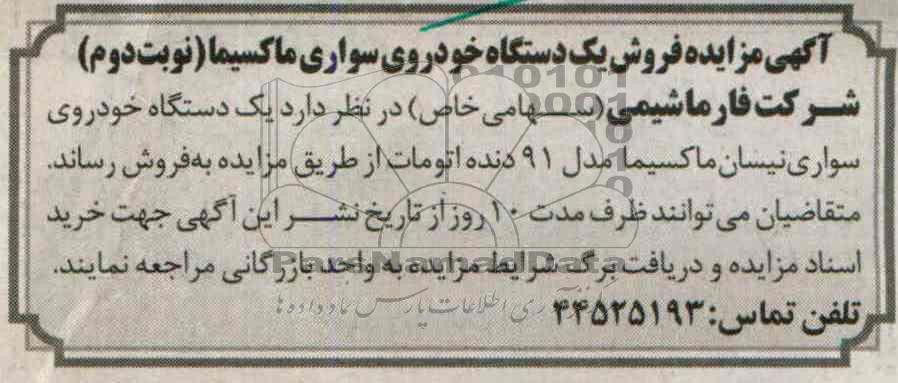 آگهی مزایده فروش یک دستگاه خودروی سواری ماکسیما (نوبت دوم)
شرکت فارماشیمی (سهامی خاص) در نظر دارد یک دستگاه خودروی
سواری نیسان ماکسیما مدل ۹۱ دنده اتومات از طریق مزایده به‌فروش رساند.
متقاضیان می‌توانند ظرف مدت ۱۰ روز از تاریخ نشر این آگهی جهت خرید
اسناد مزایده و دریافت برگ شرایط مزایده به واحد بازرگانی مراجعه نمایند.
ParsNamadData
تلفن تماس: ۴۴۵۲۵۱۹۳